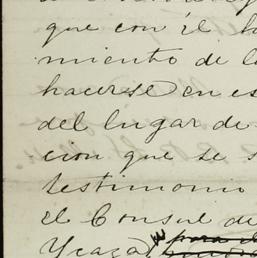 que con él ha
miento de la
hacerse en es
del lugar de
cion que se s
testimonio
el Consul de
Ycaza